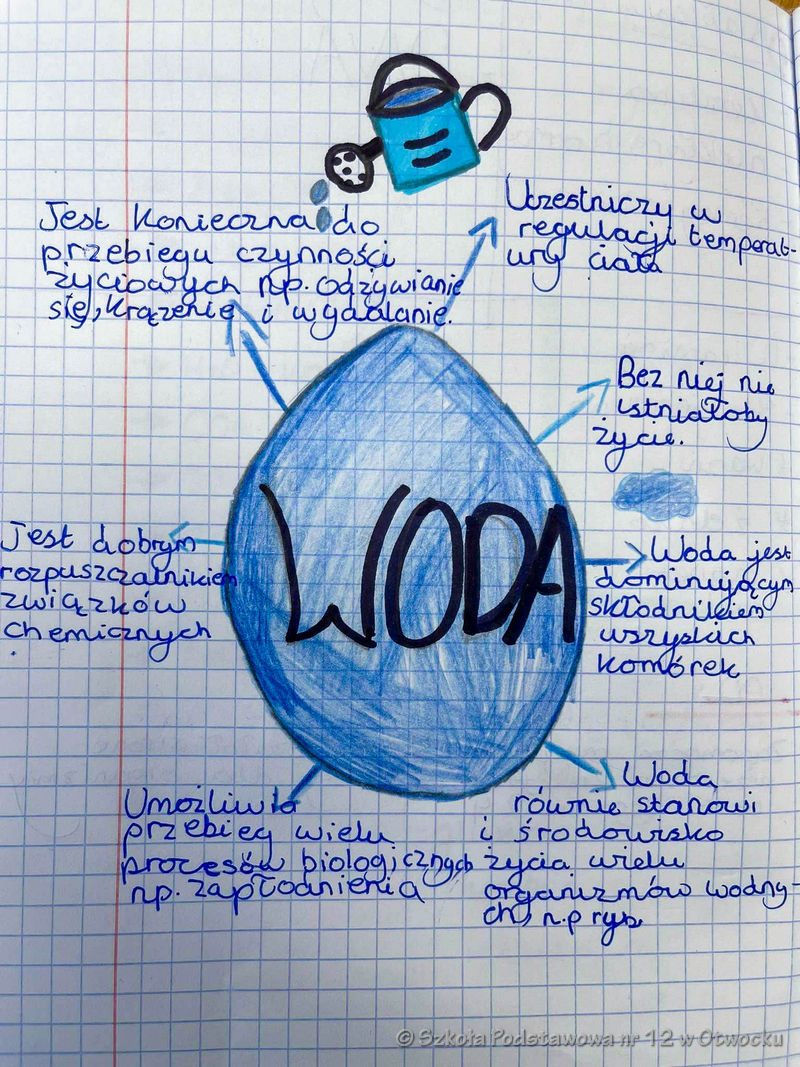 Jest Konieczna do
przebiegu czynności
życiowych np. odżywianie
się, krążenie i wydalanie.
Uczestniczy w
regulacji temperat-
ury ciała
Bez niej nie
istniałoby
życie.
WODA
Jest dobrym
rozpuszczalnikiem
związków
chemicznych
Woda jest
dominującym
składnikiem
wszyskich
komórek
Umożliwia
przebieg wielu
procesów biologicznych
np. zapłodnienia
Woda
równie stanowi
i środowisko
życia wielu
organizmów wodny-
ch, n.p ryb
© Szkoła Podstawowa nr 12 w Otwocku